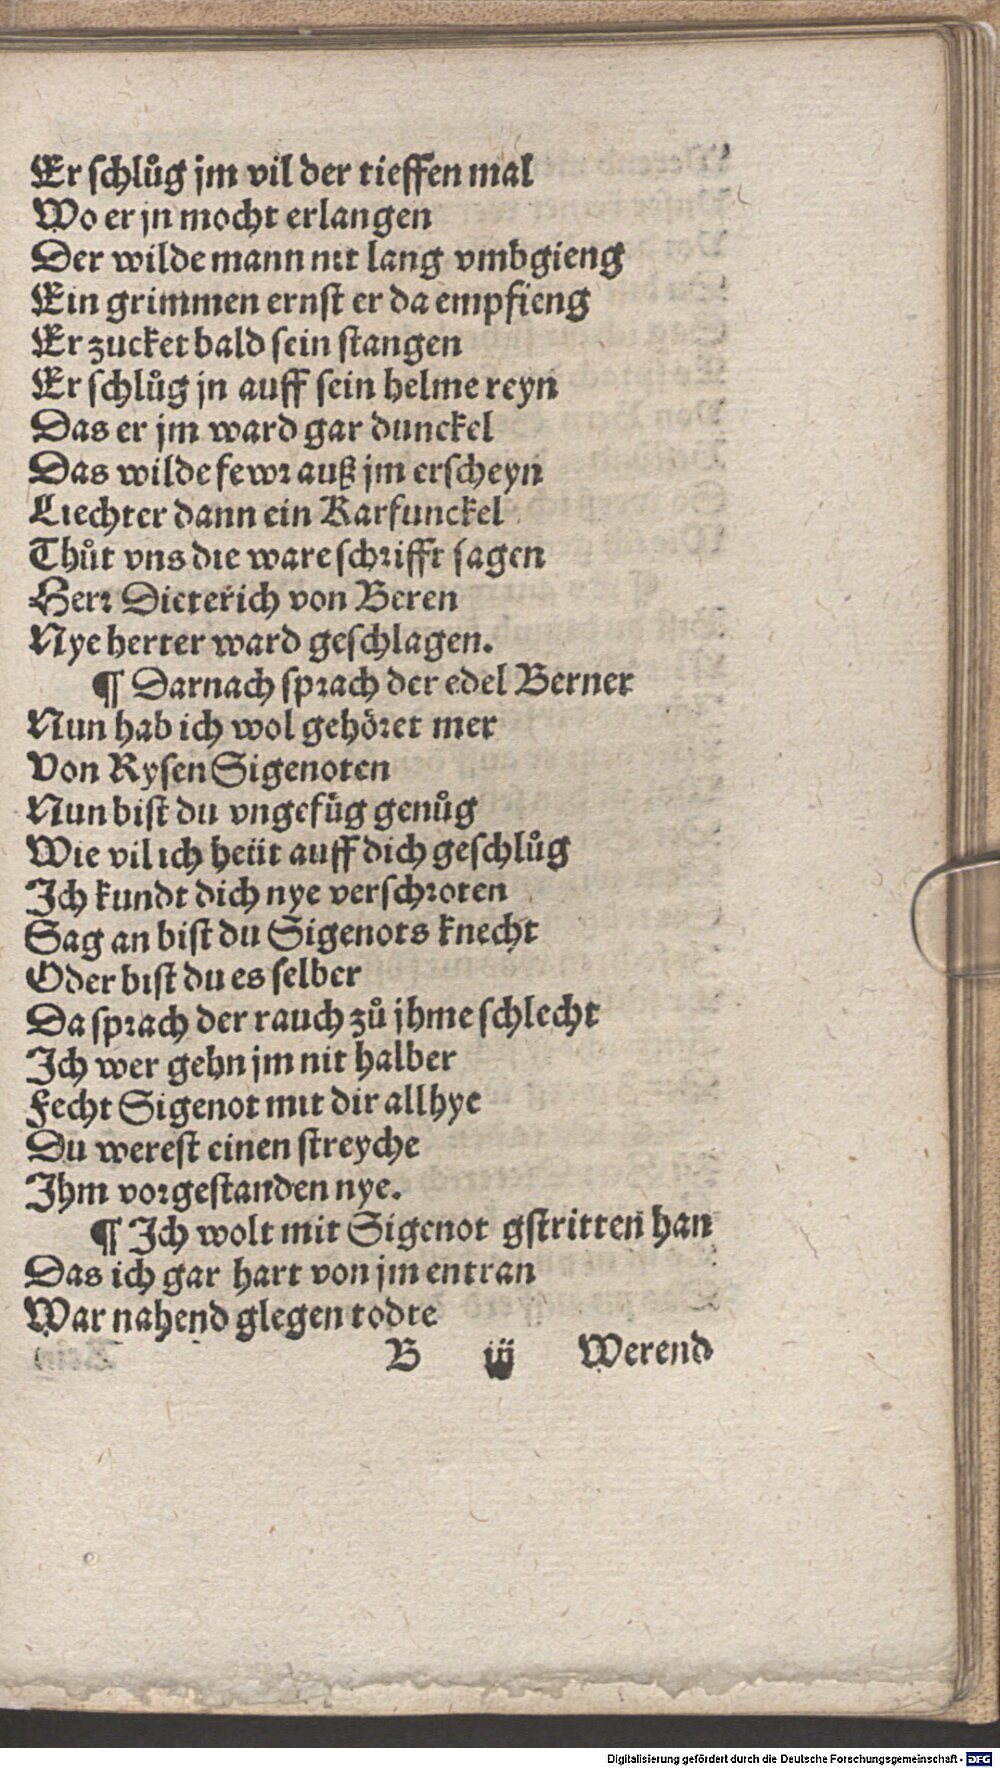 Er schlůg jm vil der tieffen mal
Wo er jn mocht erlangen
Der wilde mann nit lang vmbgieng
Ein grimmen ernst er da empfieng
Er zucket bald sein stangen
Er schlůg jn auff sein helme reyn
Das er jm ward gar dunckel
Das wilde fewr auß jm erscheyn
Liechter dann ein Karfunckel
Thůt vns die ware schrifft sagen
Herr Dieterich von Beren
Nye herter ward geschlagen.
¶ Darnach sprach der edel Berner
Nun hab ich wol gehöret mer
Von Rysen Sigenoten
Nun bist du vngefüg genůg
Wie vil ich heüt auff dich geschlůg
Ich kundt dich nye verschroten
Sag an bist du Sigenots knecht
Oder bist du es selber
Da sprach der rauch zů jhme schlecht
Ich wer gehn jm nit halber
Fecht Sigenot mit dir allhye
Du werest einen streyche
Ihm vorgestanden nye.
¶ Ich wolt mit Sigenot gstritten han
Das ich gar hart von jm entran
War nahend glegen todte
B iij Werend
Digitalisierung gefördert durch die Deutsche Forschungsgemeinschaft - DFG